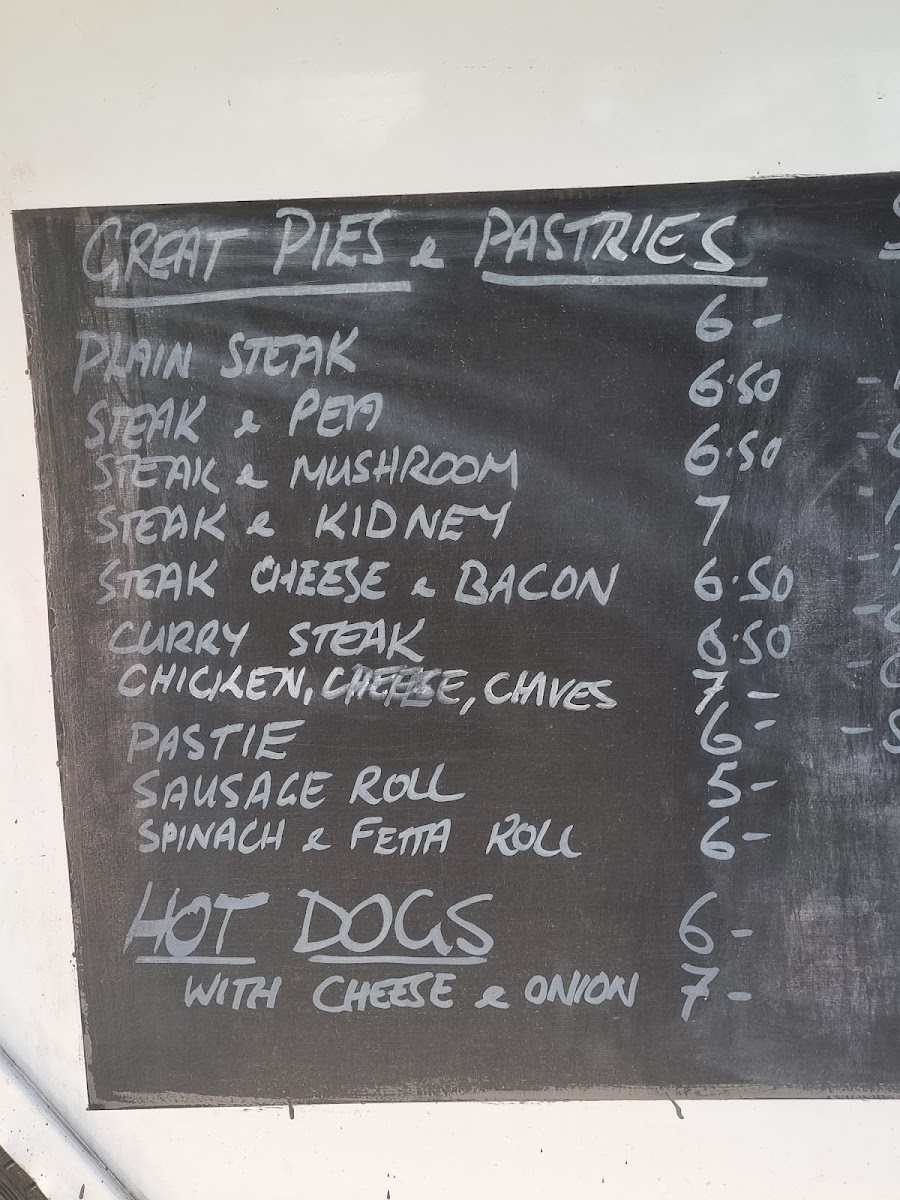 GREAT PIES & PASTRIES
PLAIN STEAK 6-
STEAK & PEA 6.50
STEAK & MUSHROOM 6.50
STEAK & KIDNEY 7
STEAK CHEESE & BACON 6.50
CURRY STEAK 6.50
CHICKEN, CHEESE, CHIVES 7-
PASTIE 6-
SAUSAGE ROLL 5-
SPINACH & FETTA ROLL 6-
HOT DOGS 6-
WITH CHEESE & ONION 7-